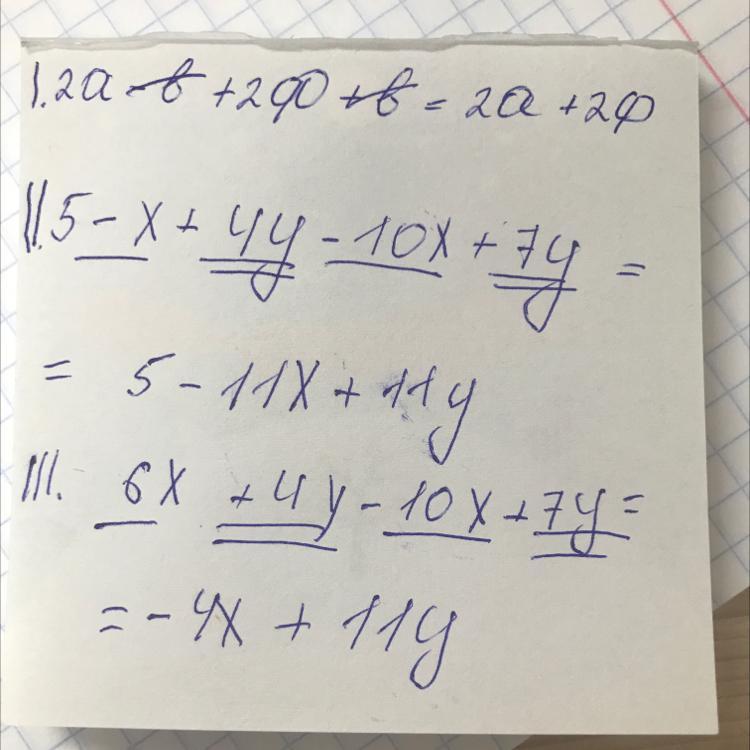 I. 2a - b + 2φ + b = 2a + 2φ
II. 5 - x + 4y - 10x + 7y =
= 5 - 11x + 11y
III. 6x + 4y - 10x + 7y =
= - 4x + 11y